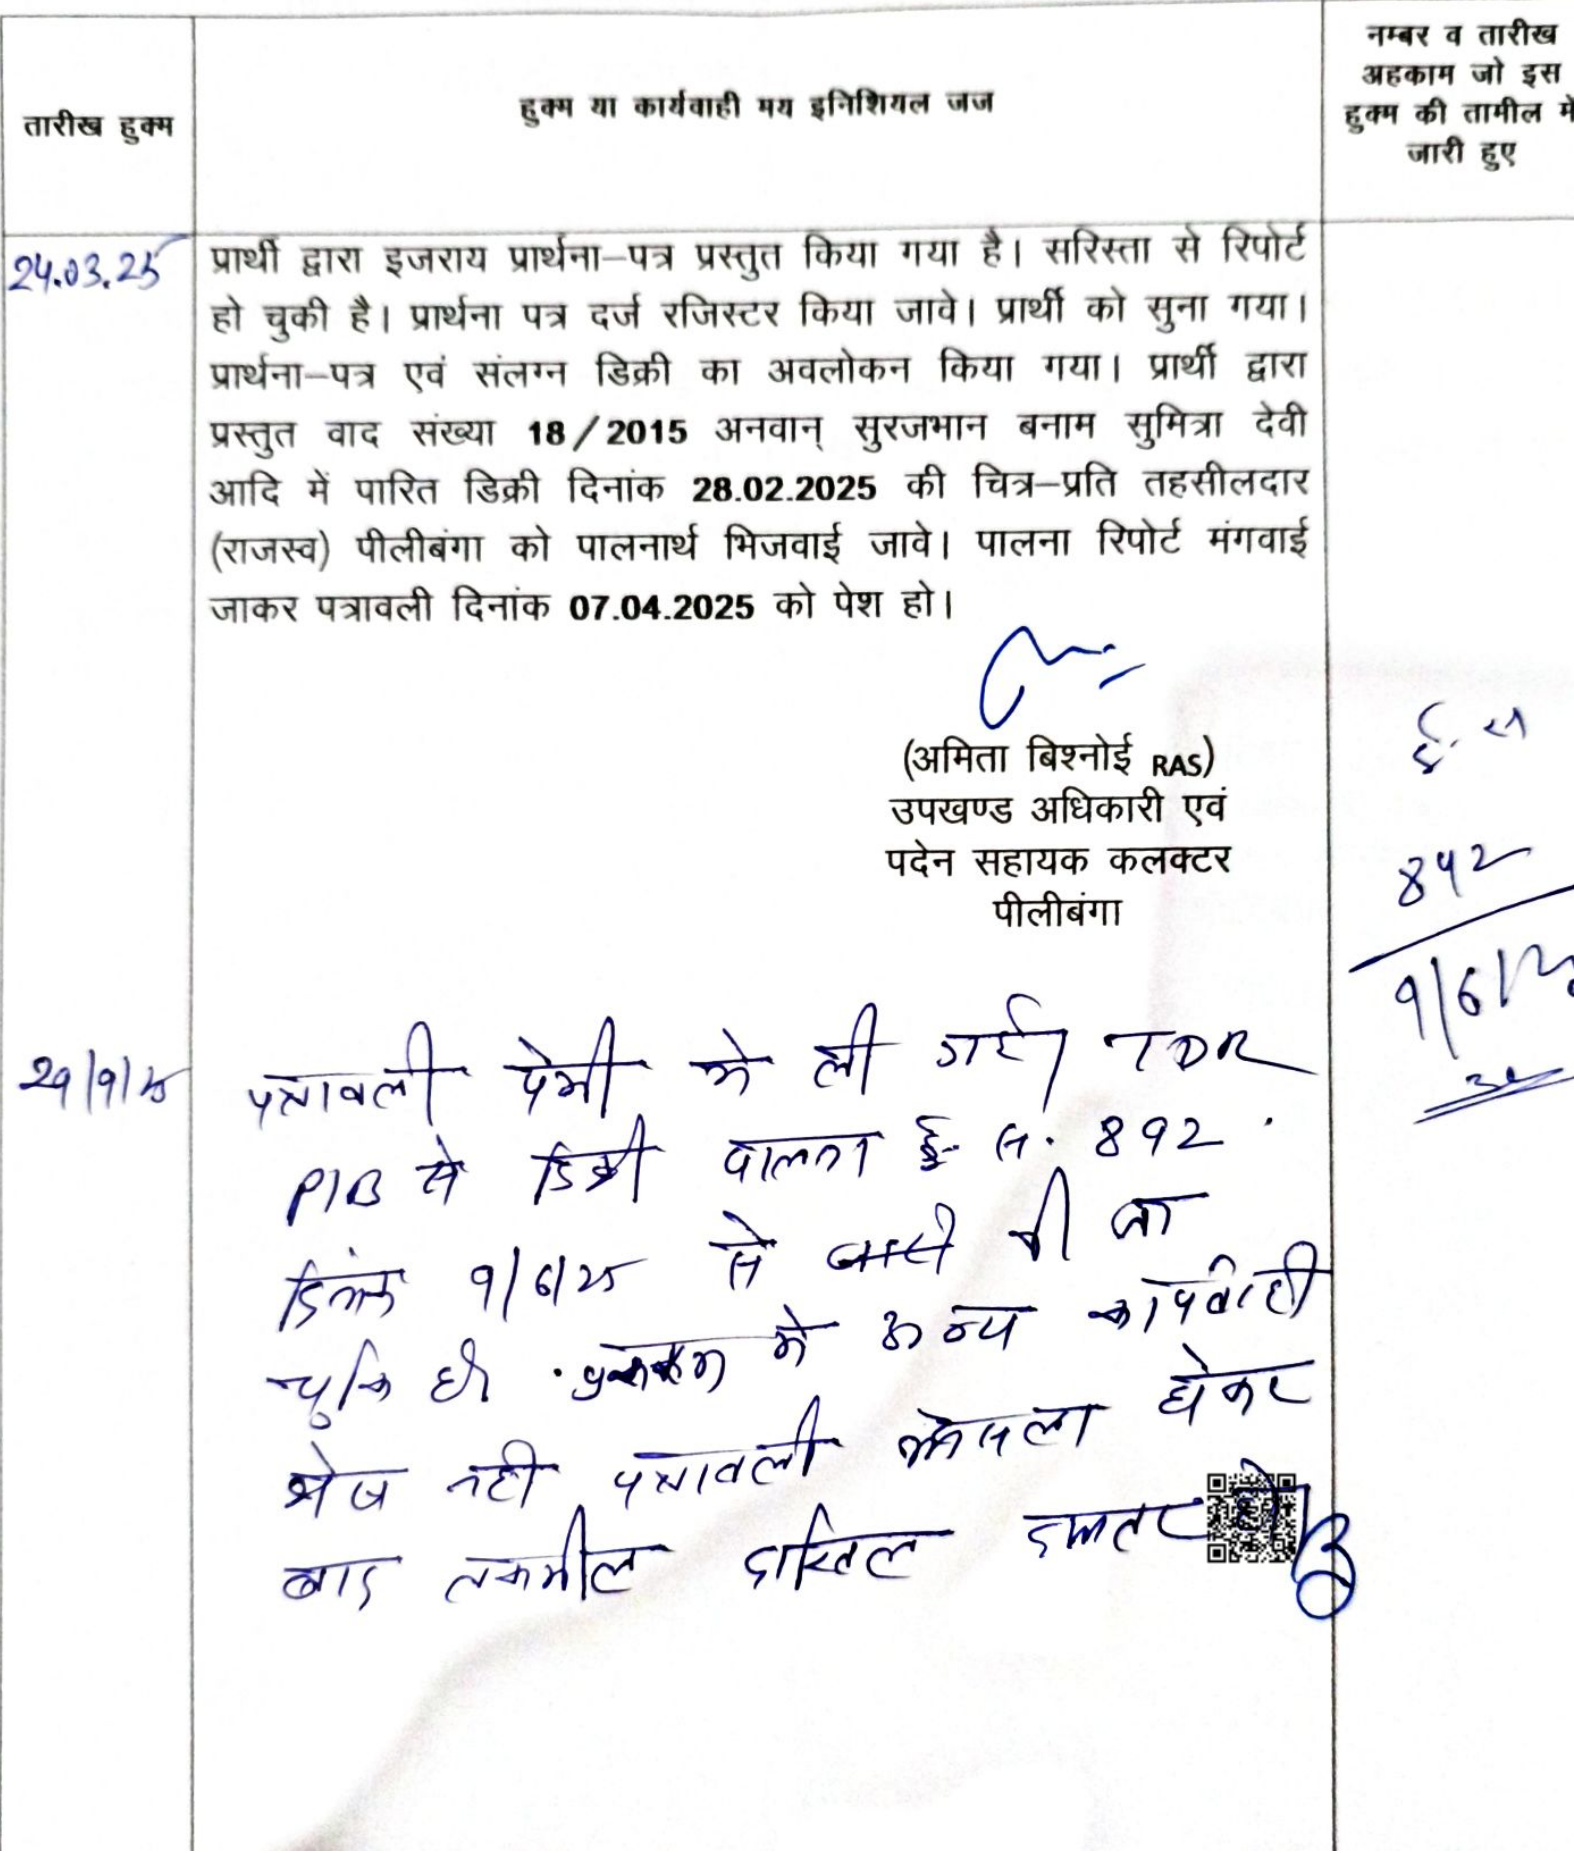 तारीख हुक्म
हुक्म या कार्यवाही मय इनिशियल जज
नम्बर व तारीख
अहकाम जो इस
हुक्म की तामील में
जारी हुए
24.03.25
प्रार्थी द्वारा इजराय प्रार्थना–पत्र प्रस्तुत किया गया है। सरिस्ता से रिपोर्ट
हो चुकी है। प्रार्थना पत्र दर्ज रजिस्टर किया जावे। प्रार्थी को सुना गया।
प्रार्थना–पत्र एवं संलग्न डिक्री का अवलोकन किया गया। प्रार्थी द्वारा
प्रस्तुत वाद संख्या 18/2015 अनवान् सुरजभान बनाम सुमित्रा देवी
आदि में पारित डिक्री दिनांक 28.02.2025 की चित्र–प्रति तहसीलदार
(राजस्व) पीलीबंगा को पालनार्थ भिजवाई जावे। पालना रिपोर्ट मंगवाई
जाकर पत्रावली दिनांक 07.04.2025 को पेश हो।
(अमिता बिश्नोई RAS)
उपखण्ड अधिकारी एवं
पदेन सहायक कलक्टर
पीलीबंगा
ई. स
892
9/6/25
29/9/25
पत्रावली पेशी में ली गई। TDR
PIB से डिक्री पालना ई. स. 892
दिनांक 9/6/25 से जारी की जा
चुकि है। में अन्य कार्यवाही
शेष नही पत्रावली फैसला होकर
बाद तकमील दाखिल दफ्तर हो